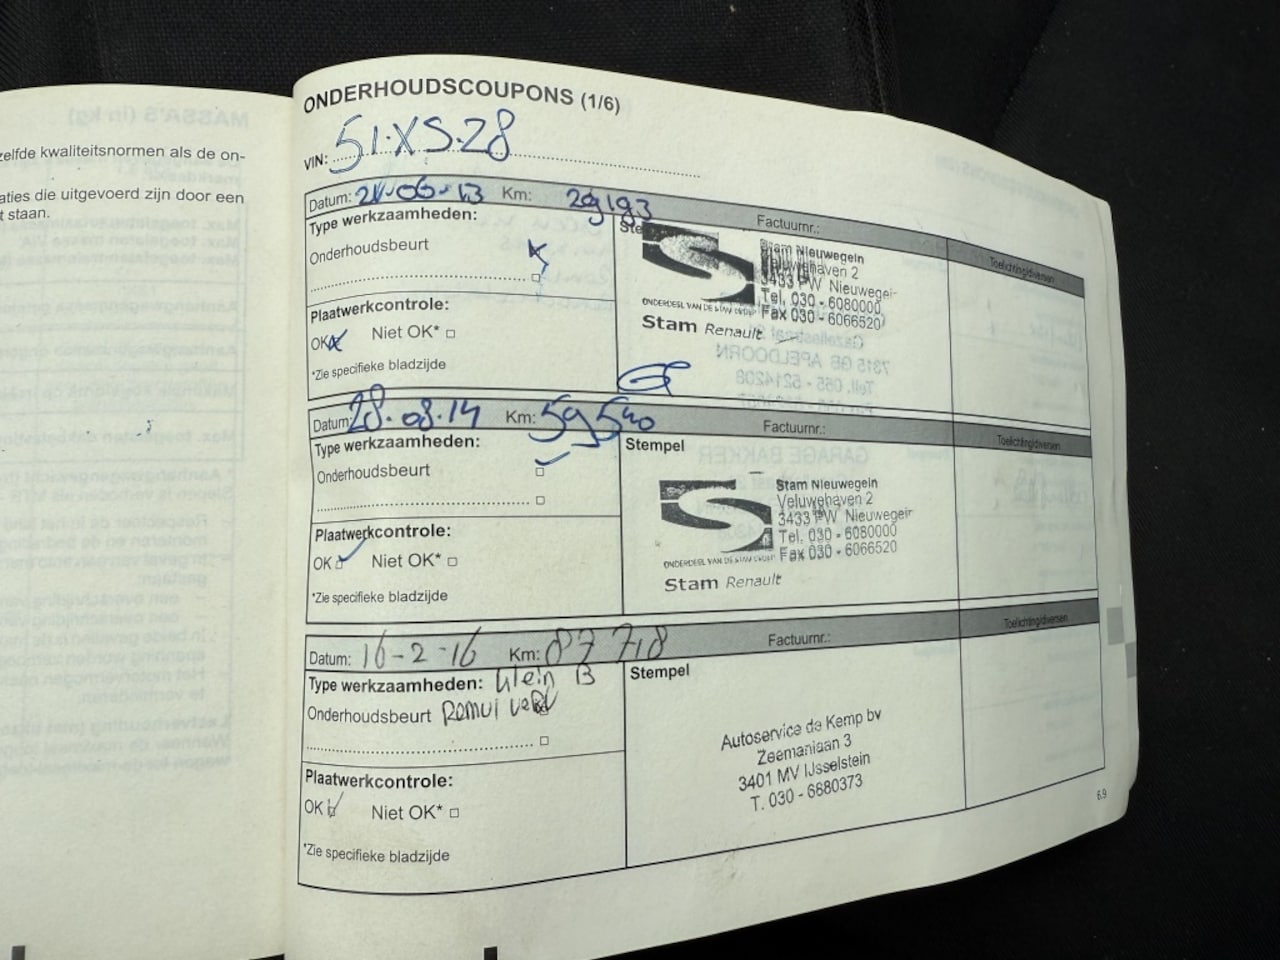 zelfde kwaliteitsnormen als de on-
aties die uitgevoerd zijn door een
t staan.
ONDERHOUDSCOUPONS (1/6)
VIN: 51-XS-28
Datum: 21-06-13 Km: 29193 Factuurnr.:
Type werkzaamheden:
Onderhoudsbeurt
Plaatwerkcontrole:
OK Niet OK*
*Zie specifieke bladzijde
Ste
Stam Nieuwegein
Veluwehaven 2
3433 PW Nieuwegein
Tel. 030 - 6080000
Fax 030 - 6066520
ONDERDEEL VAN DE STAM GROEP
Stam Renault
Toelichting/diversen
Datum: 28-08-14 Km: 59540 Factuurnr.:
Type werkzaamheden:
Onderhoudsbeurt
Plaatwerkcontrole:
OK Niet OK*
*Zie specifieke bladzijde
Stempel
Stam Nieuwegein
Veluwehaven 2
3433 PW Nieuwegein
Tel. 030 - 6080000
Fax 030 - 6066520
ONDERDEEL VAN DE STAM GROEP
Stam Renault
Toelichting/diversen
Datum: 16-2-16 Km: 87718 Factuurnr.:
Type werkzaamheden: Klein B
Onderhoudsbeurt
Plaatwerkcontrole:
OK Niet OK*
*Zie specifieke bladzijde
Stempel
Autoservice de Kemp bv
Zeemanlaan 3
3401 MV IJsselstein
T. 030 - 6880373
Toelichting/diversen
6.9